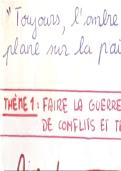 "Toujours, l'ombre
plane sur la pai
THÈME 1: FAIRE LA GUERRE
DE CONFLITS ET T